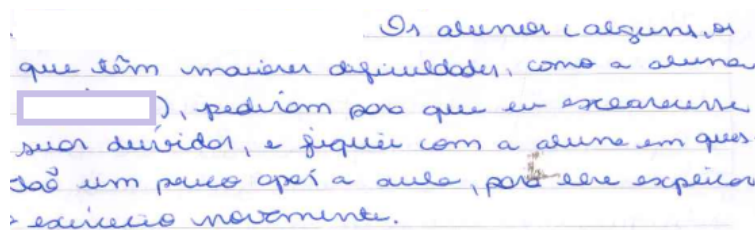 Os alunos (alguns, os
que têm maiores dificuldades, como a aluna
), pediram para que eu esclarecesse
suas dúvidas, e fiquei com a aluna em ques
tão um pouco após a aula, para lhe explicar
o exercício novamente.